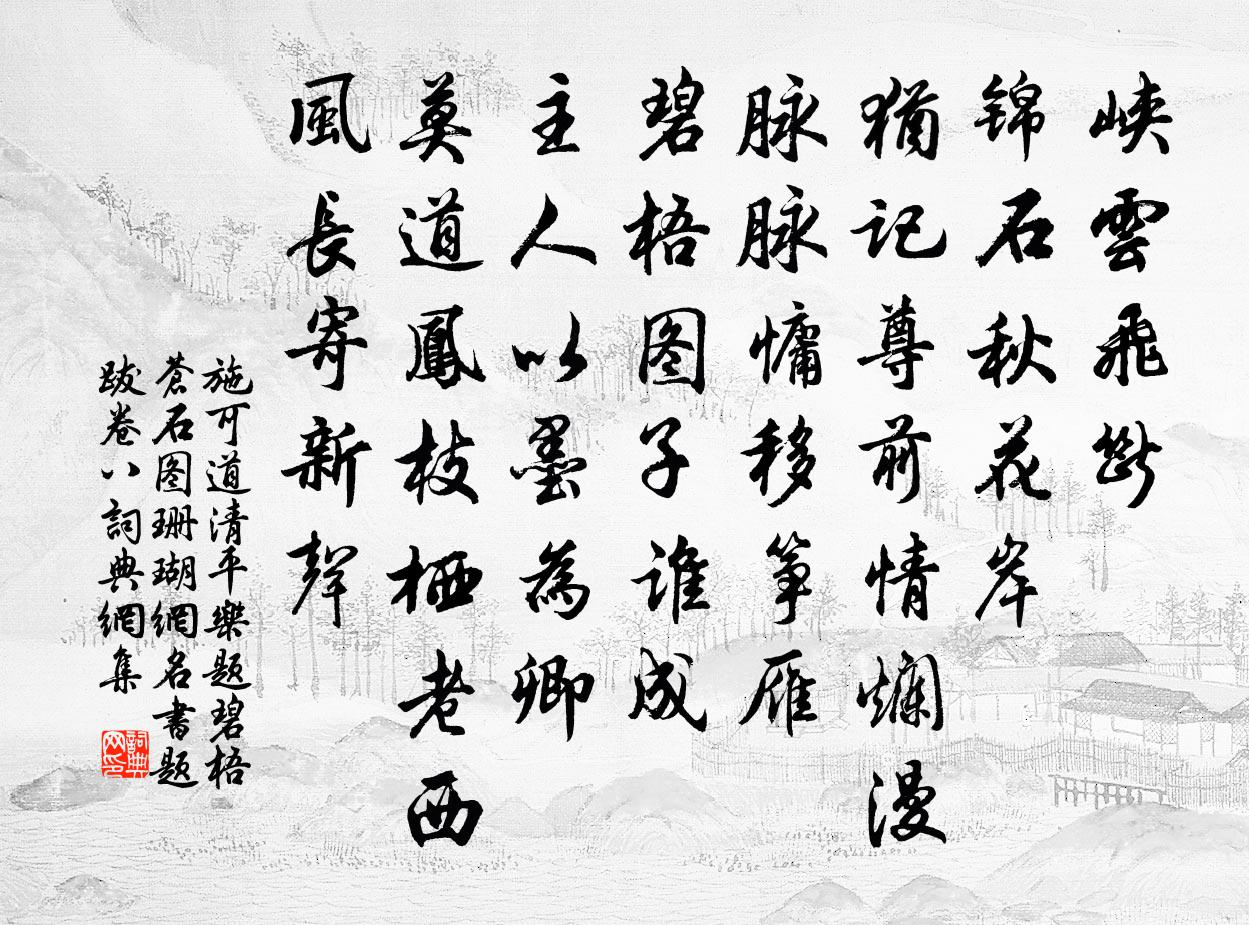 峽雲飛斷
錦石秋花岸
猶記尊前情爛漫
脉脉慵移箏雁
碧梧图子誰成
主人以墨為卿
莫道鳳枝栖老西
風長寄新聲
施可道清平樂题碧梧
蒼石图珊瑚網名書题
跋卷八詞典網集
詞典网印